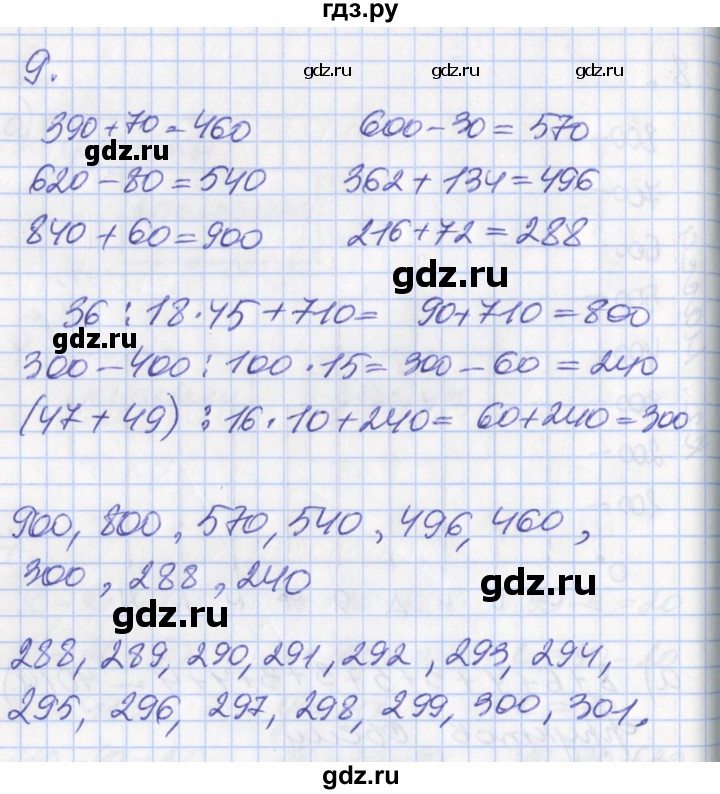 гдз.ру
9.
gdz.ru gdz.ru
390+70=460 600-30=570
gdz.ru
620-80=540 362+134=496
840+60=900 216+72=288
gdz.ru
36:18·45+710= 90+710=800
gdz.ru
300-400:100·15= 300-60=240
(47+49):16·10+240= 60+240=300
900, 800, 570, 540, 496, 460,
300, 288, 240
gdz.ru
gdz.ru
288, 289, 290, 291, 292, 293, 294,
295, 296, 297, 298, 299, 300, 301.
gdz.ru